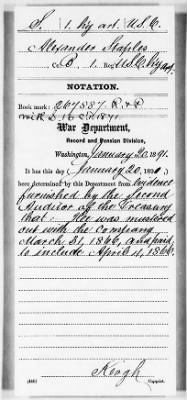 S. 1. Hy. art. U.S.C.
Alexander Staples
Co. B. 1. Reg't U.S.C. Hy. art.
NOTATION.
Book mark: 267887. R. & P.
War Department,
Record and Pension Division,
Washington, January 20 1891.
It has this day (January 20, 1891)
been determined by this Department from evidence
furnished by the Second
Auditor of the Treasury
that: He was mustered
out with the company
March 31, 1866, and paid
to include April 4, 1866.
Keogh
Copyist.